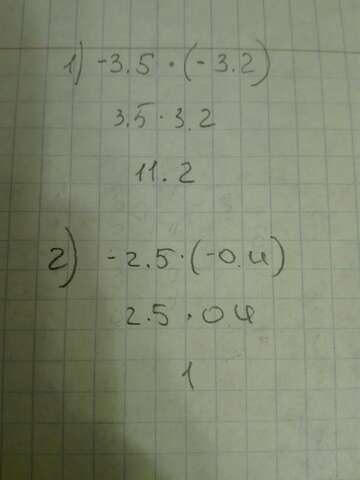 1) -3.5 · (-3.2)
3.5 · 3.2
11.2
2) -2.5 · (-0.4)
2.5 · 0.4
1